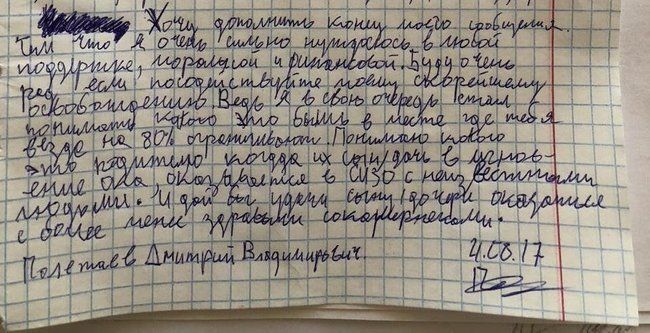 Хочу дополнить конец моего сообщения.
Тем что я очень сильно нуждаюсь в любой
поддержке, моральной и финансовой. Буду очень
рад если посодействуйте моему скорейшему
освобождению. Ведь я в свою очередь стал
понимать какого это быть в месте где тебя
везде на 80% ограничивают. Понимаю какого
это родителю когда их сын/дочь в мгнов-
ение ока оказывается в СИЗО с неизвестными
людьми. И дай бы удачи сыну/дочери оказатся
с более менее здравыми сокамерниками.
Полетаев Дмитрий Владимирович.
4.08.17